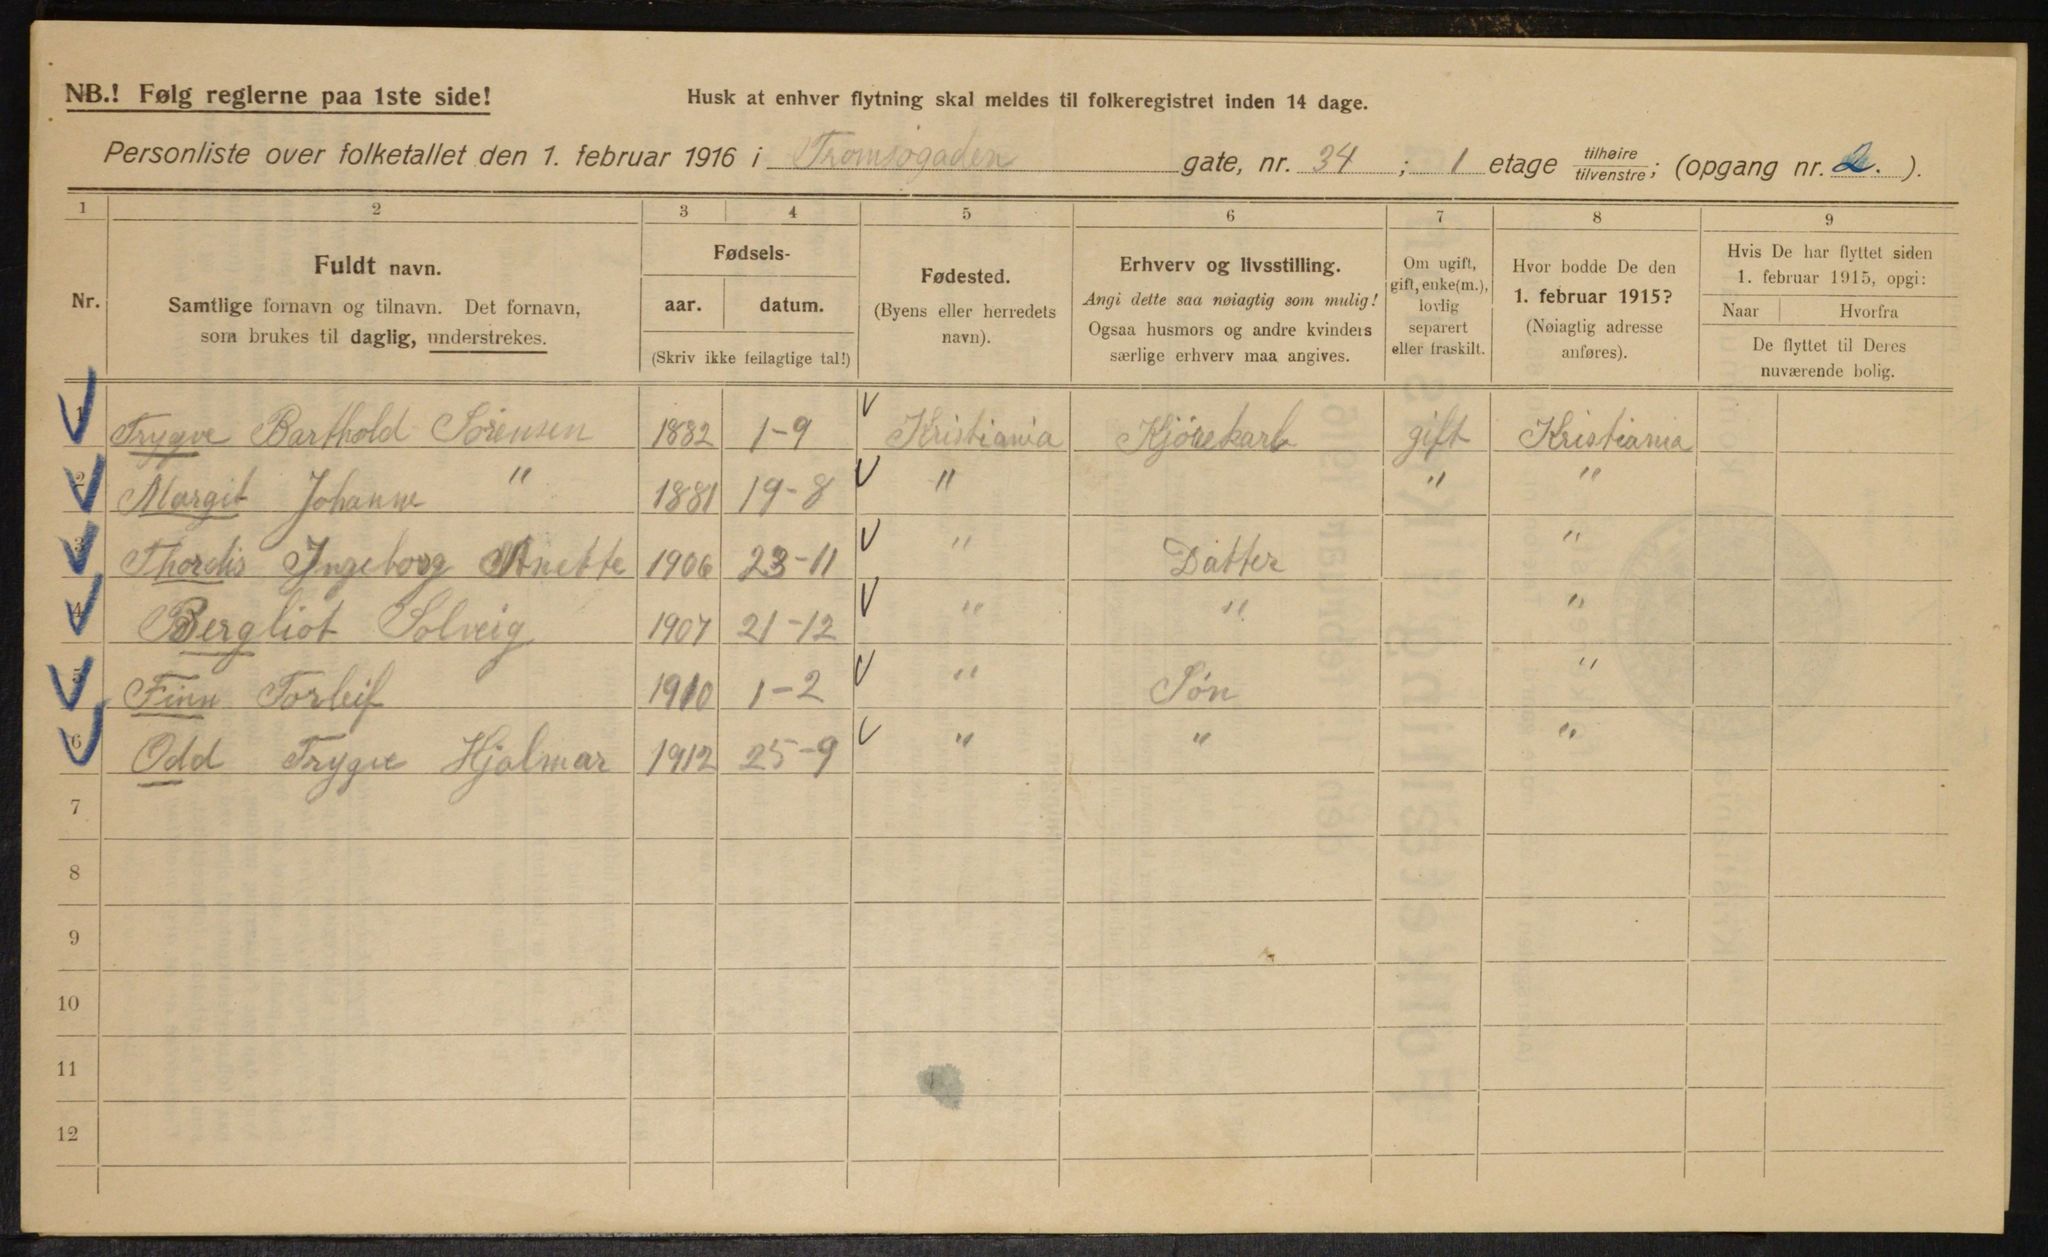 NB.! Følg reglerne paa 1ste side!
Husk at enhver flytning skal meldes til folkeregistret inden 14 dage.
Personliste over folketallet den 1. februar 1916 i Tromsøgaden gate, nr. 34 ; 1 etage tilhøire tilvenstre; (opgang nr. 2. ).
1 2 3 4 5 6 7 8 9
Nr.
Fuldt navn.
Samtlige fornavn og tilnavn. Det fornavn,
som brukes til daglig, understrekes.
Fødsels-
aar. datum.
(Skriv ikke feilagtige tal!)
Fødested.
(Byens eller herredets
navn).
Erhverv og livsstilling.
Angi dette saa nøiagtig som mulig!
Ogsaa husmors og andre kvinders
særlige erhverv maa angives.
Om ugift,
gift, enke(m.),
lovlig
separert
eller fraskilt.
Hvor bodde De den
1. februar 1915?
(Nøiagtig adresse
anføres).
Hvis De har flyttet siden
1. februar 1915, opgi:
Naar Hvorfra
De flyttet til Deres
nuværende bolig.
1 Trygve Barthold Sørensen 1882 1-9 Kristiania Kjørekarl gift Kristiania
2 Margit Johanne " 1881 19-8 " " "
3 Thordis Ingeborg Anette 1906 23-11 " Datter "
4 Bergliot Solveig 1907 21-12 " " "
5 Finn Torleif 1910 1-2 " Søn "
6 Odd Trygve Hjalmar 1912 25-9 " " "
7
8
9
10
11
12